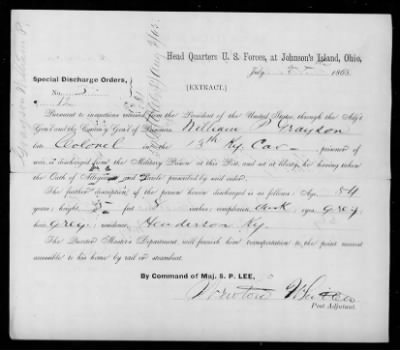 Grayson William P.
Head Quarters U. S. Forces, at Johnson's Island, Ohio,
July 1865.
Special Discharge Orders,
No.
[EXTRACT.]
Pursuant to instructions received from the President of the United States, through the Adj't
Gen'l and the Com'ry Gen'l of Prisoners William P Grayson
late Colonel in the 13th Ky. Cav prisoner of
war, is discharged from the Military Prison at this Post, and set at liberty, he having taken
the Oath of Allegiance and Parole prescribed by said order.
The further description of the person hereon discharged is as follows: Age, 54
years; height, 5 feet inches; complexion dark, eyes grey,
hair grey; residence, Henderson Ky.
The Quarter Master's Department will furnish him transportation to the point nearest
accessible to his home by rail or steamboat.
By Command of Maj. S. P. LEE,
Newton
Post Adjutant.